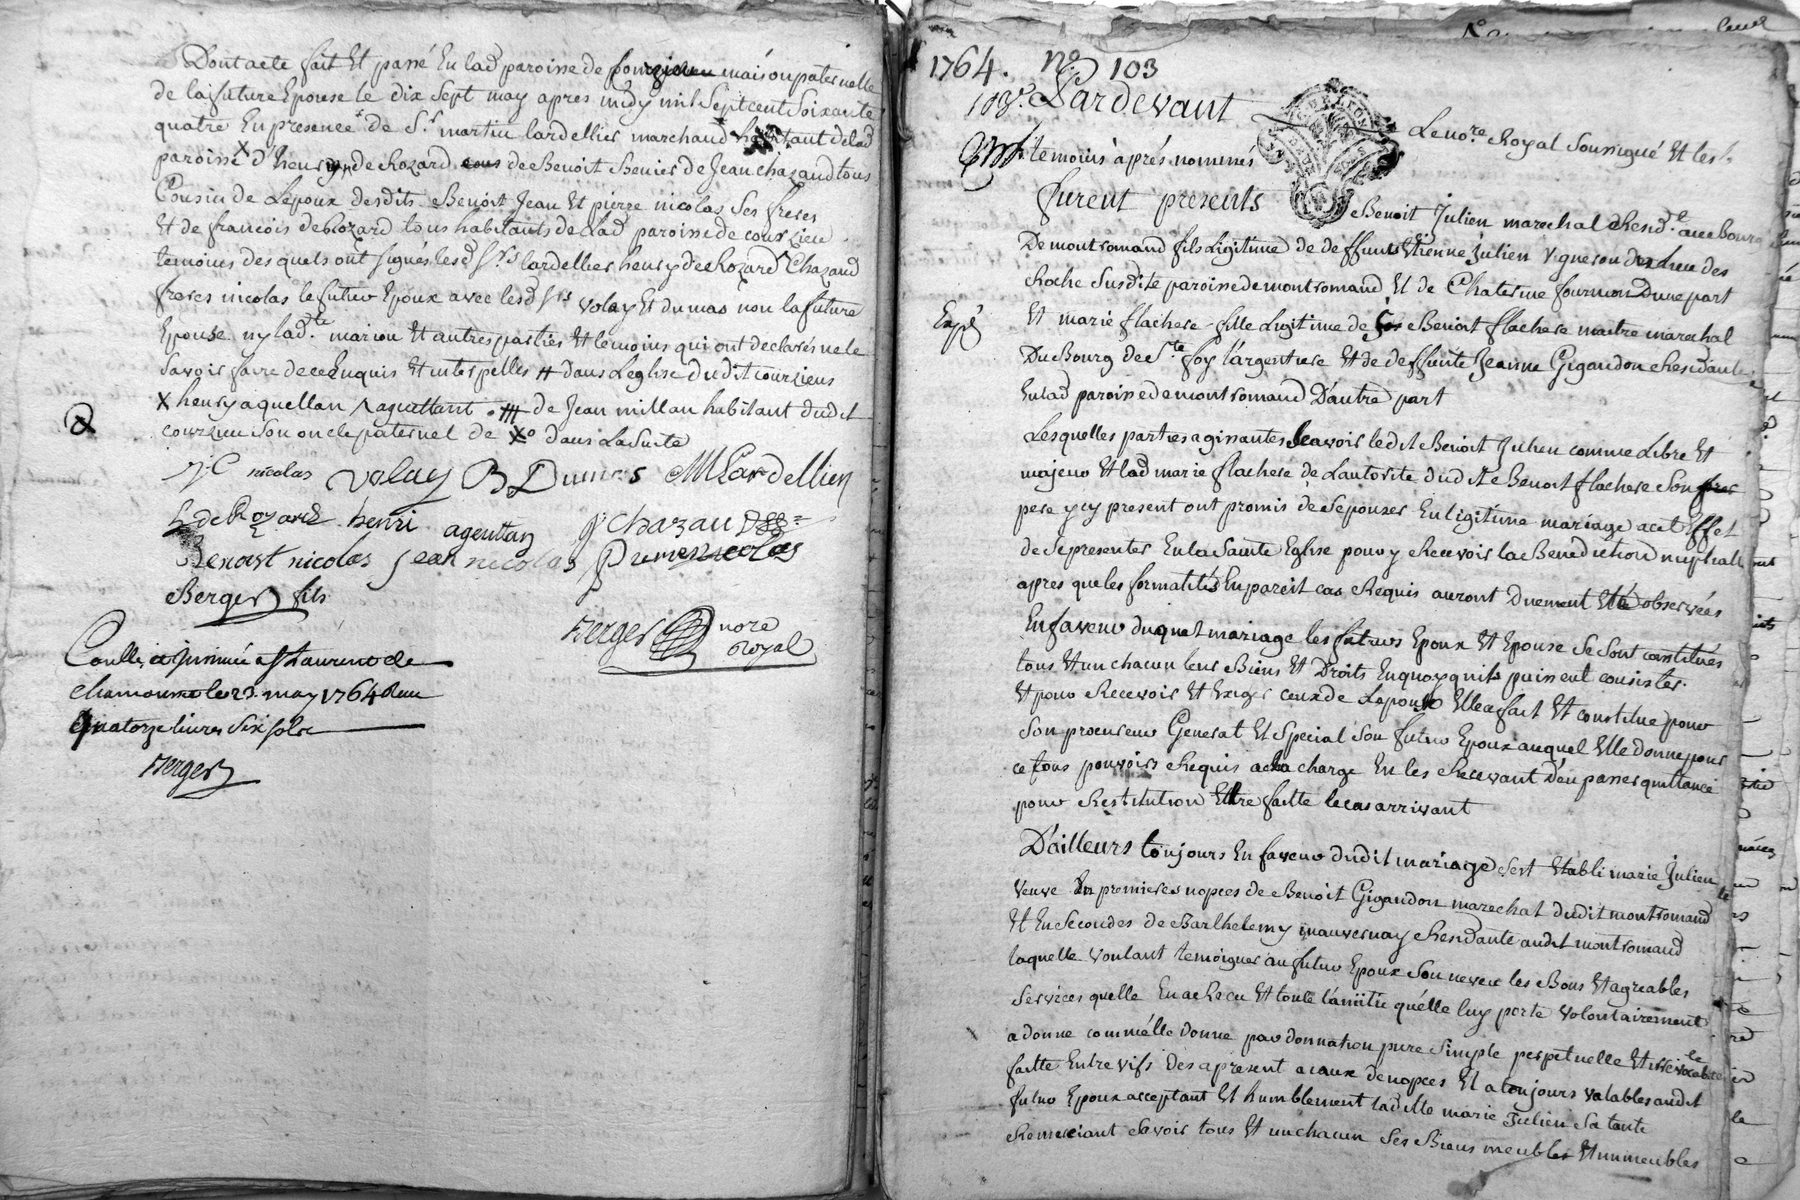 Dont acte fait Et passé En lad paroisse de maison paternelle
de la future Epouse le dix sept may apres midy mil Sept cent Soixante
quatre En presence de Sr martin lardellier marchand habitant de lad
paroisse d'henry de Rozard de Benoit de Jean chazaud tous
Cousin de Lepoux desdits Benoit Jean Et pierre nicolas Ses freres
Et de francois de Rozard tous habitants de Lad paroisse de courzieu
temoins desquels ont signés lesd Srs lardellier henry de Rozard Chazaud
freres nicolas le futur Epoux avec lesd Srs volay Et dumas non la future
Epouse ny lad.te marion Et autres parties Et temoins qui ont declarés ne le
Savoir faire de ce Enquis Et interpellés # dans L'eglise dudit courzieu
X henry aquettan / aguettant # de Jean millan habitant dudit
courzieu Son oncle paternel de dans La Suite
J C nicolas volay B Dumas M Lardellier
de Rozard henri aguettan J Chazaud
Benoist nicolas jean nicolas pierre nicolas
Berger fils
Berger nore
Royal
Conllé et insinué a St Laurent de
chamousset le 23. may 1764 Reçu
quatorze livres Six sols
Berger
1764. no. 103
108e Pardevant
Le nore. Royal Soussigné Et les
temoins après nommés
furent presents
Benoit Julien marechal Resid.te au bourg
De montromand fils Ligitime de deffunt Etienne Julien Vigneron du Lieu des
Roche Susdite paroisse de montromand Et de Chaterine fournion D'une part
Expé
Et marie flachere fille Ligitime de Benoit flachere maitre marechal
Du Bourg de Ste foy l'argentiere Et de deffunte Jeanne Gigandon Residante
En lad paroisse de montromand D'autre part
Lesquelles parties agissantes Scavoir ledit Benoit Julien comme Libre Et
majeur Et lad marie flachere de L'autorité dudit Benoit flachere Son
pere y cy present ont promis de Sepouser En Ligitime mariage a cet Effet
de Se presenter En la Sainte Eglise pour y Recevoir la Benediction nuptialle
apres que les formalités En pareit cas Requis auront Duement Eté observées
En faveur duquel mariage les futurs Epoux Et Epouse Se Sont constitués
tous Et un chacun leur Biens Et Droits En quoy qu'ils puissent consister
Et pour Recevoir Et Exiger ceux de L'Epouse Elle a fait Et constitue pour
Son procureur General Et Special Son futur Epoux auquel Elle donne pour
ce tous pouvoirs Requis a la charge En les Recevant D'en passer quittance
pour Restitution Etre faitte le cas arrivant
D'ailleurs toujours En faveur dudit mariage Sest Etabli marie Julien
veuve En premieres nopces de Benoit Gigandon marechal dudit montromand
Et En Secondes de Barthelemy mauvernay Residante audit montromand
laquelle voulant temoigner au futur Epoux Son neveu les Bons Et agreables
Services quelle En a Recu Et toute l'amitié qu'elle luy porte volontairement
a donne comm'elle donne par donnation pure Simple perpetuelle Et irrevocable
faitte Entre vifs Des apresent a caux de nopces Et a toujours valables audit
futur Epoux acceptant Et humblement ladite marie Julien Sa tante
Remerciant Savoir tous Et un chacun Ses Biens meubles Et immeubles